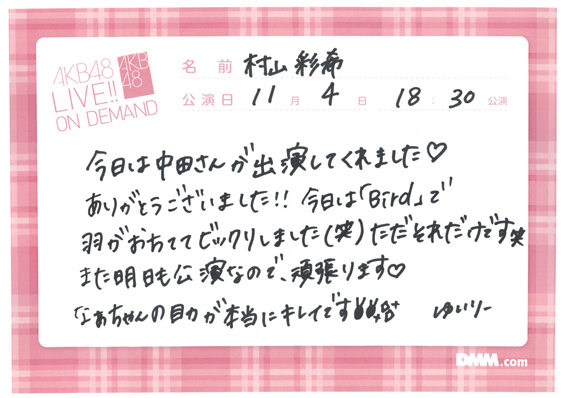 AKB48
LIVE!!
ON DEMAND
AKB
48
名 前 村山 彩希
公演日 11 月 4 日 18 : 30 公演
今日は中田さんが出演してくれました♡
ありがとうございました!! 今日は「Bird」で
羽がおちててビックリしました(笑)ただそれだけです笑
また明日も公演なので、頑張ります♡
なぁちゃんの目力が本当にキレイです ゆいりー
DMM.com